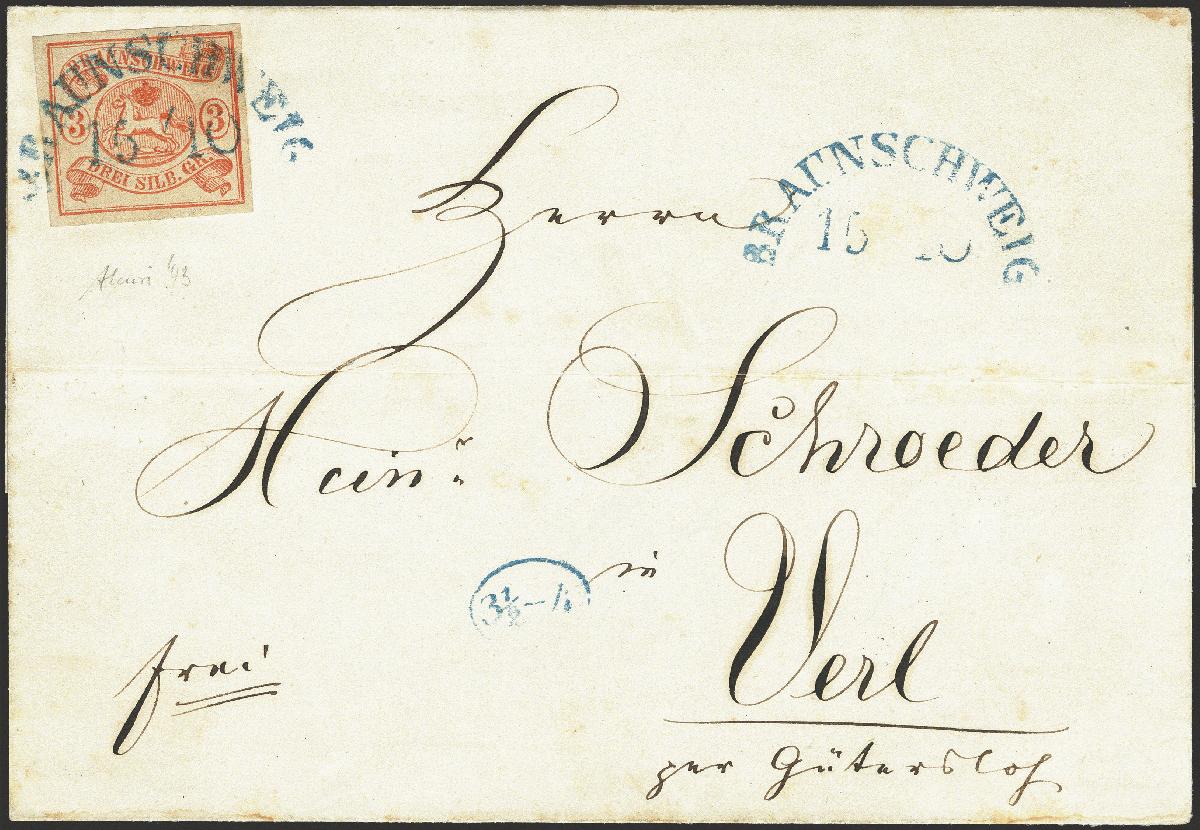 BRAUNSCHWEIG
3 3
DREI SILB. GR.
BRAUNSCHWEIG
15 10
BRAUNSCHWEIG
15 10
Herrn
Hein: Schroeder
3½–4
in
Verl
frei
per Gütersloh